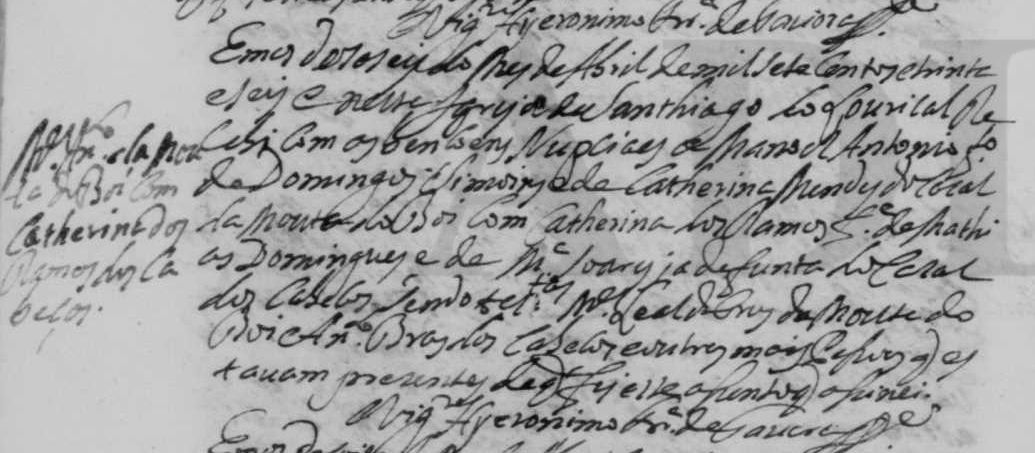 O Vigro Hyeronimo frr.a de
Em os dezaseis do Mes de Abril de mil e sete Centos e trinta
e seis e nesta Igreja de Santhiago do Lourical Re
cebi com as bençoens Nupciaes a Manoel Antonio fo
de Domingos Simoins e de Catherina Mendes do Cazal
da Mouta do Boi com Catherina dos Ramos f.a de Mathi
as Domingues e de M.a Soares ja defunta do Cazal
dos Cabeços sendo test.as M.el Leal da Crus da Mouta do
Boi e An.to Bras dos Cabeços e outras mais pessoas q es
tavam prezentes de q fis este asento q asinei.
O Vigro Hyeronimo frr.a de
M.el An.to da Mou
ta do Boi com
Catherina dos
Ramos dos Ca
beços.
Em os